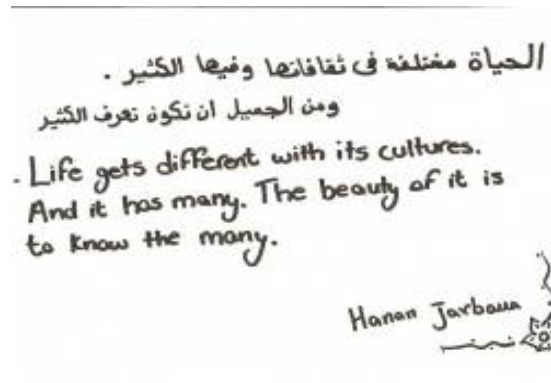 الحياة مختلفة في ثقافاتها وفيها الكثير .
ومن الجميل ان تكون تعرف الكثير
. Life gets different with its cultures.
And it has many. The beauty of it is
to know the many.
Hanan